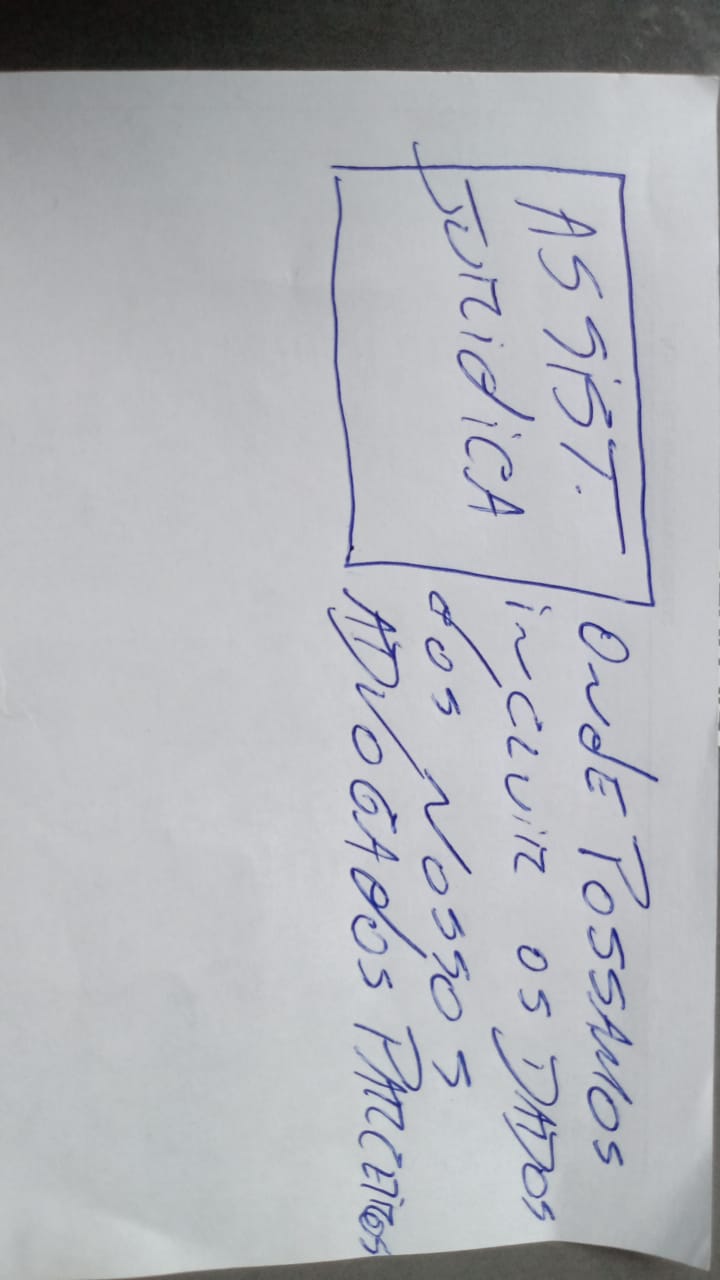 ASSIST.
JURIDICA
ONDE POSSAMOS
INCLUIR OS DADOS
DOS NOSSOS
ADVOGADOS PARCEIROS